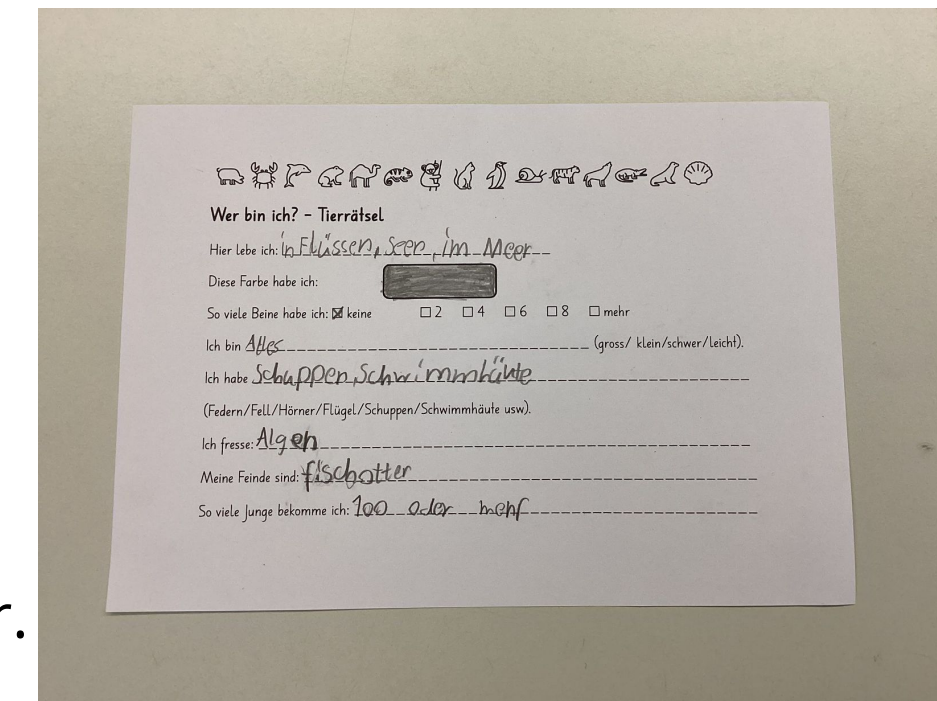 Wer bin ich? - Tierrätsel
Hier lebe ich: in Flüssen, Seen, im Meer
Diese Farbe habe ich:
So viele Beine habe ich: ☒ keine ☐ 2 ☐ 4 ☐ 6 ☐ 8 ☐ mehr
Ich bin Alles (gross/ klein/schwer/leicht).
Ich habe Schuppen, Schwimmhäute
(Federn/Fell/Hörner/Flügel/Schuppen/Schwimmhäute usw).
Ich fresse: Algen
Meine Feinde sind: fischotter
So viele Junge bekomme ich: 100 oder mehr
r.